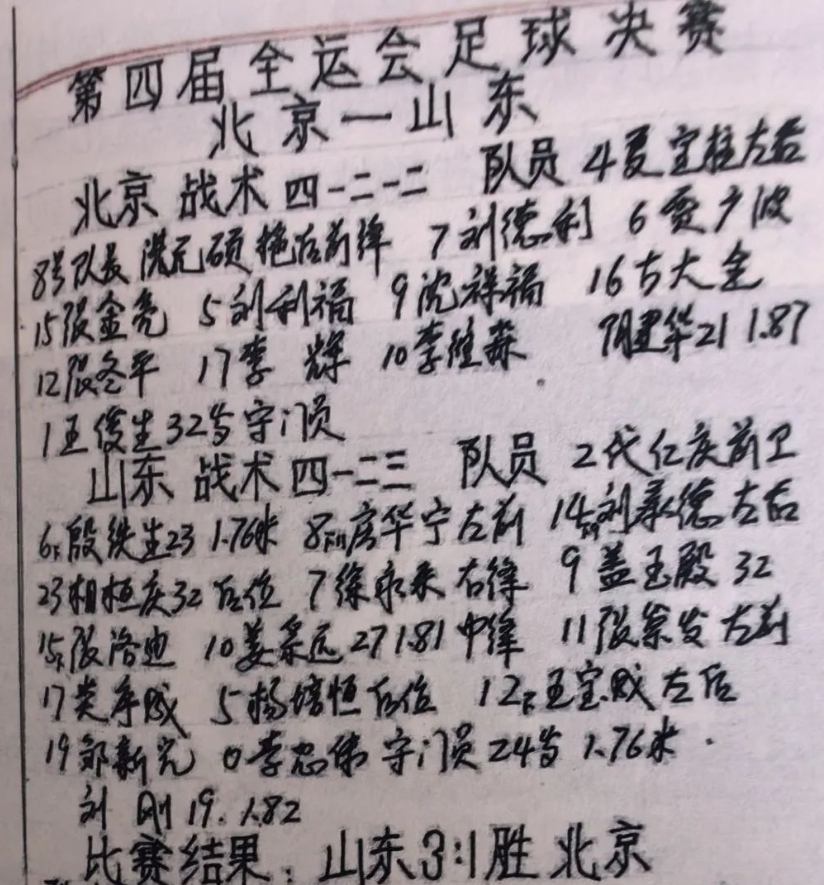 第四届全运会足球决赛
北京一山东
北京 战术 四一二一二 队员 4夏宝柱左后
8号队长 洪元硕 拖后前锋 7刘德利 6贾少波
15张金亮 5刘利福 9沈祥福 16古大全
12张冬平 17李 辉 10李维淼 阴建华21 1.87
1王俊生32岁守门员
山东 战术 四一二三 队员 2代仁庆前卫
6 殷铁生23 1.76米 8 房华宁左前 14 刘承德左后
23相恒庆32后位 7徐永来右锋 9盖玉殿 32
15 张洛迪 10姜 远27 1.81中锋 11张 发左前
17 5杨培恒后位 12 王宝 左后
19邹新光 0李忠伟 守门员24岁 1.76米.
刘 刚19. 1.82
比赛结果: 山东3:1胜 北京